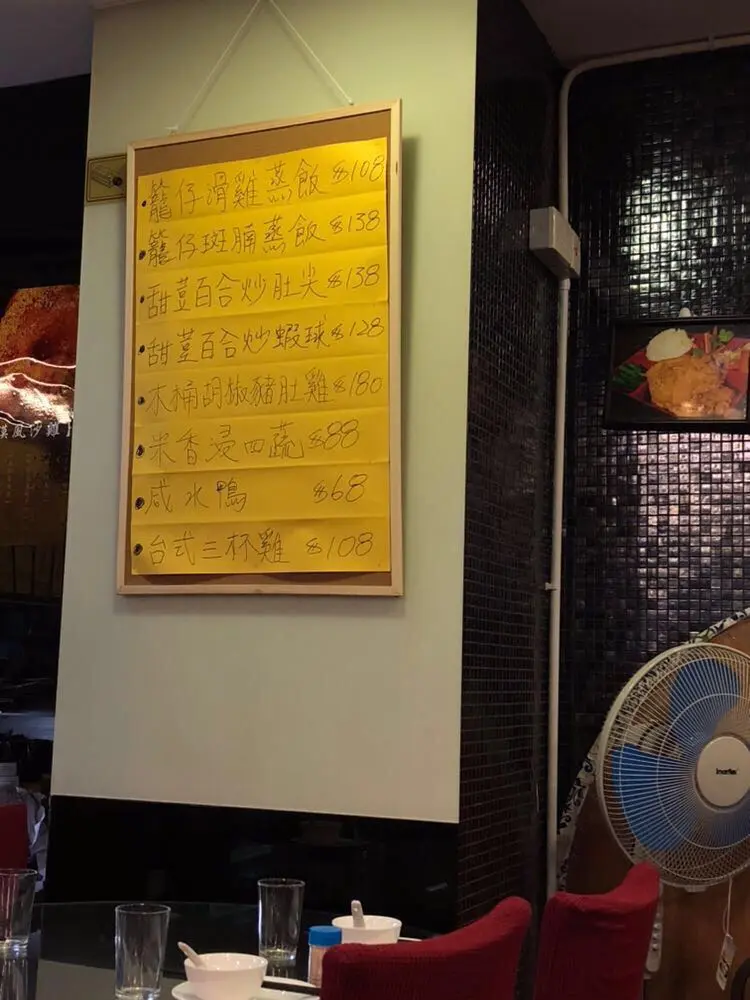 籠仔滑雞蒸飯 $108
籠仔斑腩蒸飯 $138
甜荳百合炒肚尖 $138
甜荳百合炒蝦球 $128
木桶胡椒豬肚雞 $180
米香浸四蔬 $88
咸水鴨 $68
台式三杯雞 $108
風沙雞